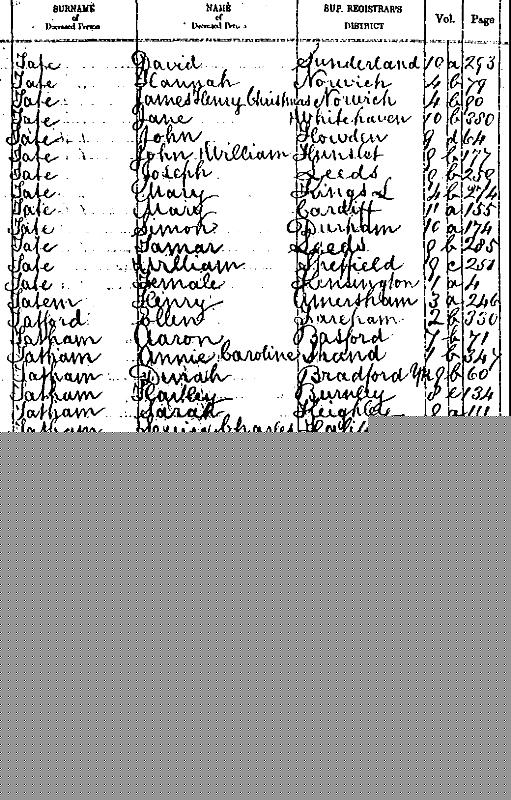 SURNAME of Deceased Person NAME of Deceased Person SUP. REGISTRAR'S DISTRICT Vol. Page
Tate David Sunderland 10 a 293
Tate Hannah Norwich 4 b 79
Tate James Henry Christmas Norwich 4 b 80
Tate Jane Whitehaven 10 b 380
Tate John Howden 9 d 64
Tate John William Hunslet 9 b 177
Tate Joseph Leeds 9 b 258
Tate Mary Kings L 4 b 274
Tate Mary Cardiff 11 a 155
Tate Simon Durham 10 a 174
Tate Tamar Leeds 9 b 285
Tate William Sheffield 9 c 251
Tate Female Kensington 1 a 4
Tatem Henry Amersham 3 a 246
Tatford Ellen Fareham 2 b 330
Tatham Aaron Basford 7 b 71
Tatham Annie Caroline Strand 1 b 347
Tatham Dinah Bradford Yk 9 b 60
Tatham Hartley Burnley 8 e 134
Tatham Sarah Keighley 9 a 111
Tatham Charles